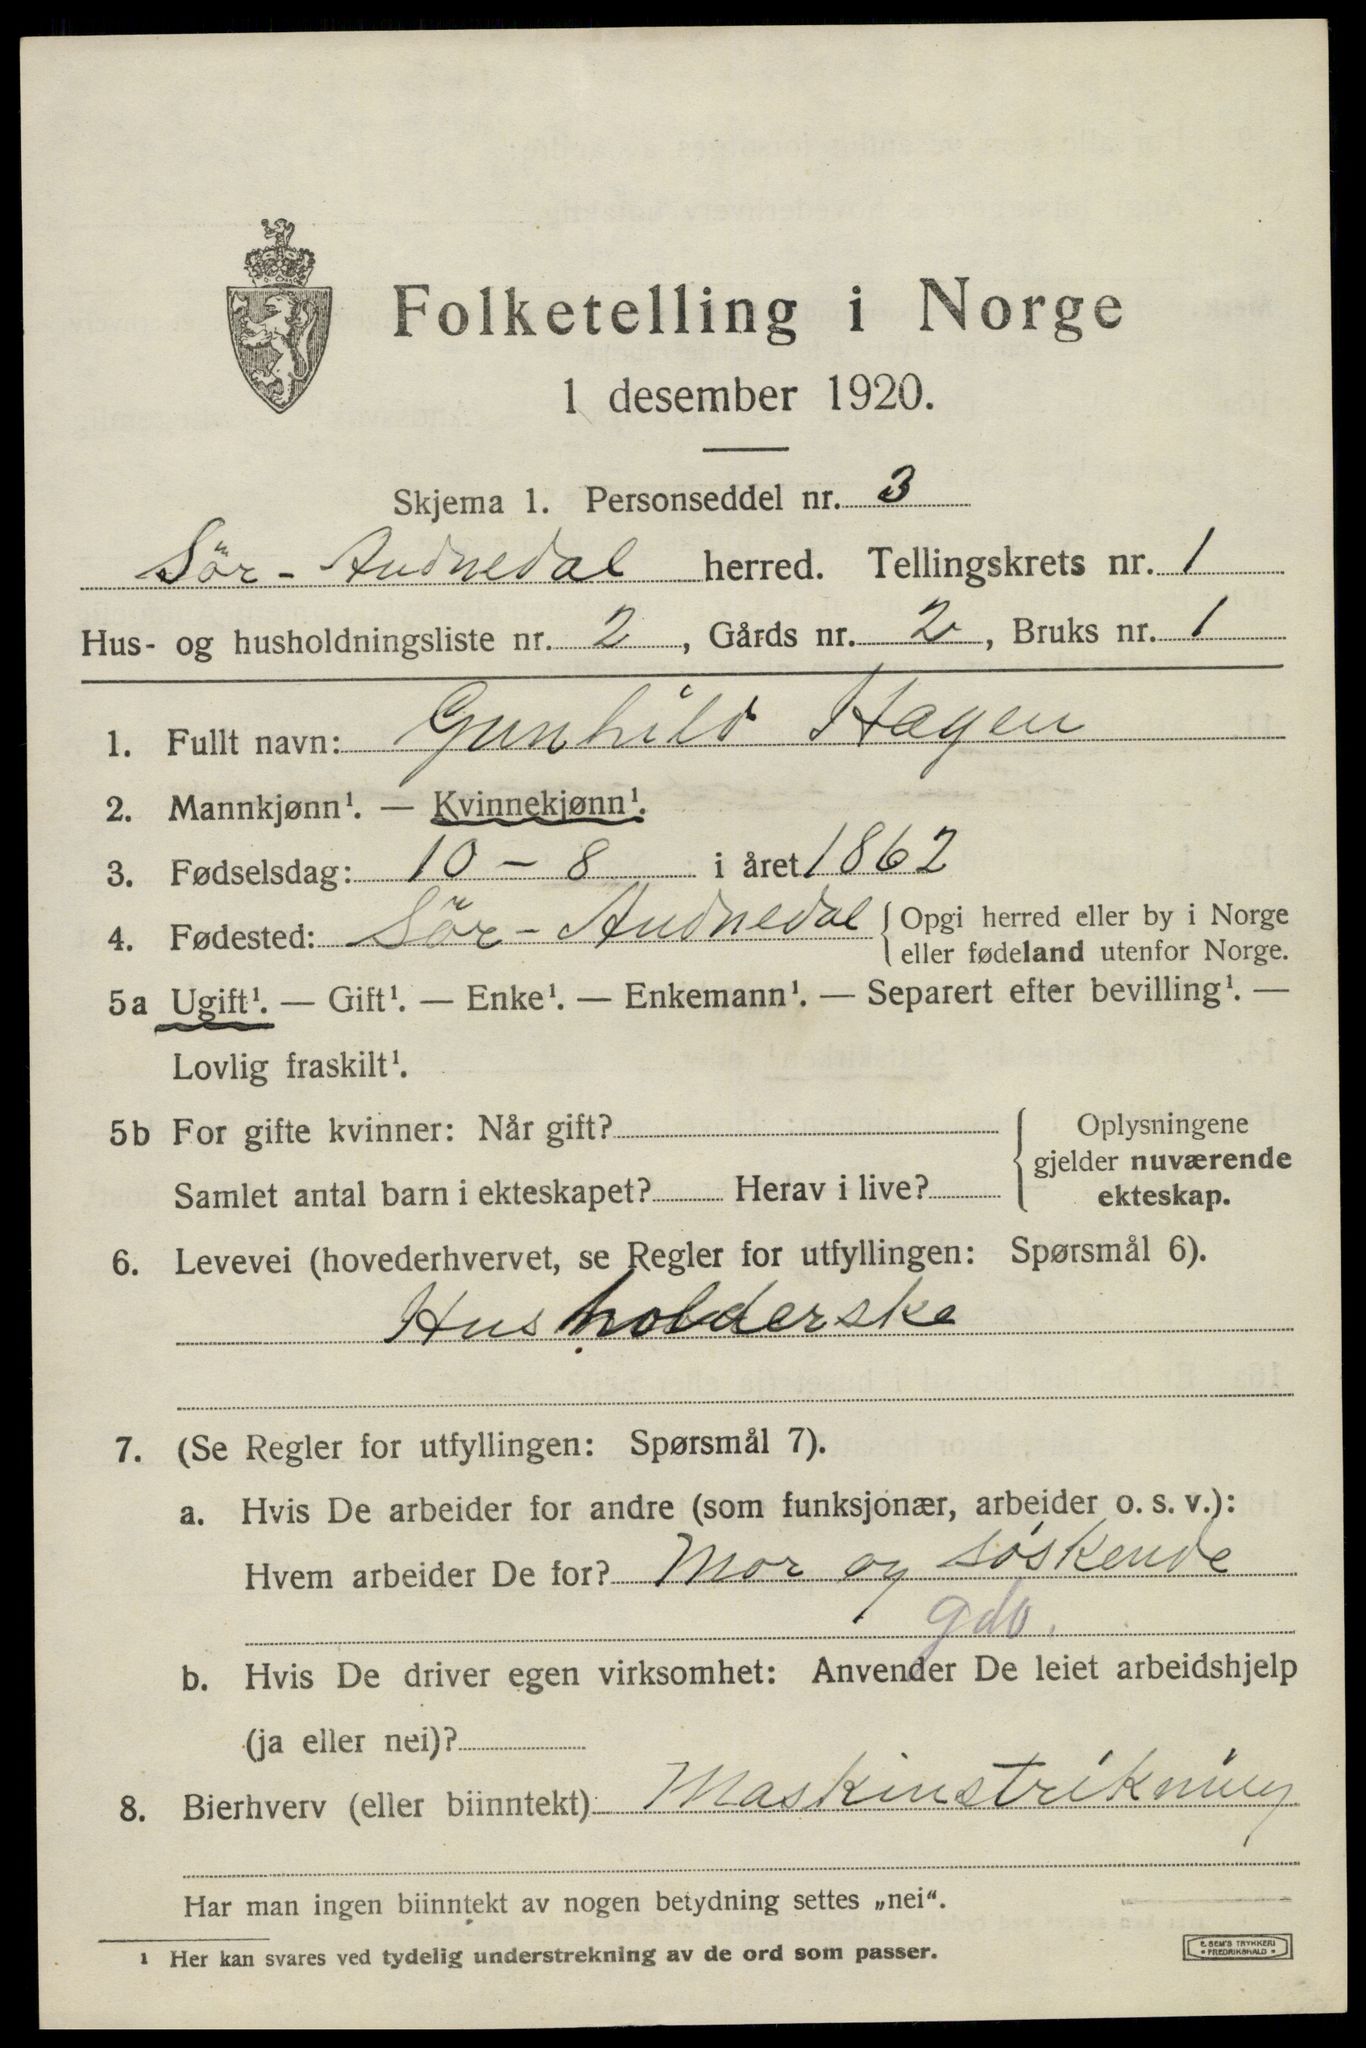 Folketelling i Norge
1 desember 1920.
Skjema 1. Personseddel nr. 3
Sör-Audnedal herred. Tellingskrets nr. 1
Hus- og husholdningsliste nr. 2, Gårds nr. 2, Bruks nr. 1
1. Fullt navn: Gunhild Hagen
2. Mannkjønn¹. — Kvinnekjønn¹.
3. Fødselsdag: 10-8 i året 1862
4. Fødested: Sör-Audnedal { Opgi herred eller by i Norge
eller fødeland utenfor Norge.
5a Ugift¹. — Gift¹. — Enke¹. — Enkemann¹. — Separert efter bevilling¹. —
Lovlig fraskilt¹.
5b For gifte kvinner: Når gift? { Oplysningene
gjelder nuværende
Samlet antal barn i ekteskapet? Herav i live? ekteskap.
6. Levevei (hovederhvervet, se Regler for utfyllingen: Spørsmål 6).
Husholderske
7. (Se Regler for utfyllingen: Spørsmål 7).
a. Hvis De arbeider for andre (som funksjonær, arbeider o. s. v.):
Hvem arbeider De for? Mor og söskende
gdb.
b. Hvis De driver egen virksomhet: Anvender De leiet arbeidshjelp
(ja eller nei)?
8. Bierhverv (eller biinntekt) Maskinstrikning
Har man ingen biinntekt av nogen betydning settes „nei“.
¹ Her kan svares ved tydelig understrekning av de ord som passer.
E. SEM'S TRYKKERI
FREDRIKSHALD